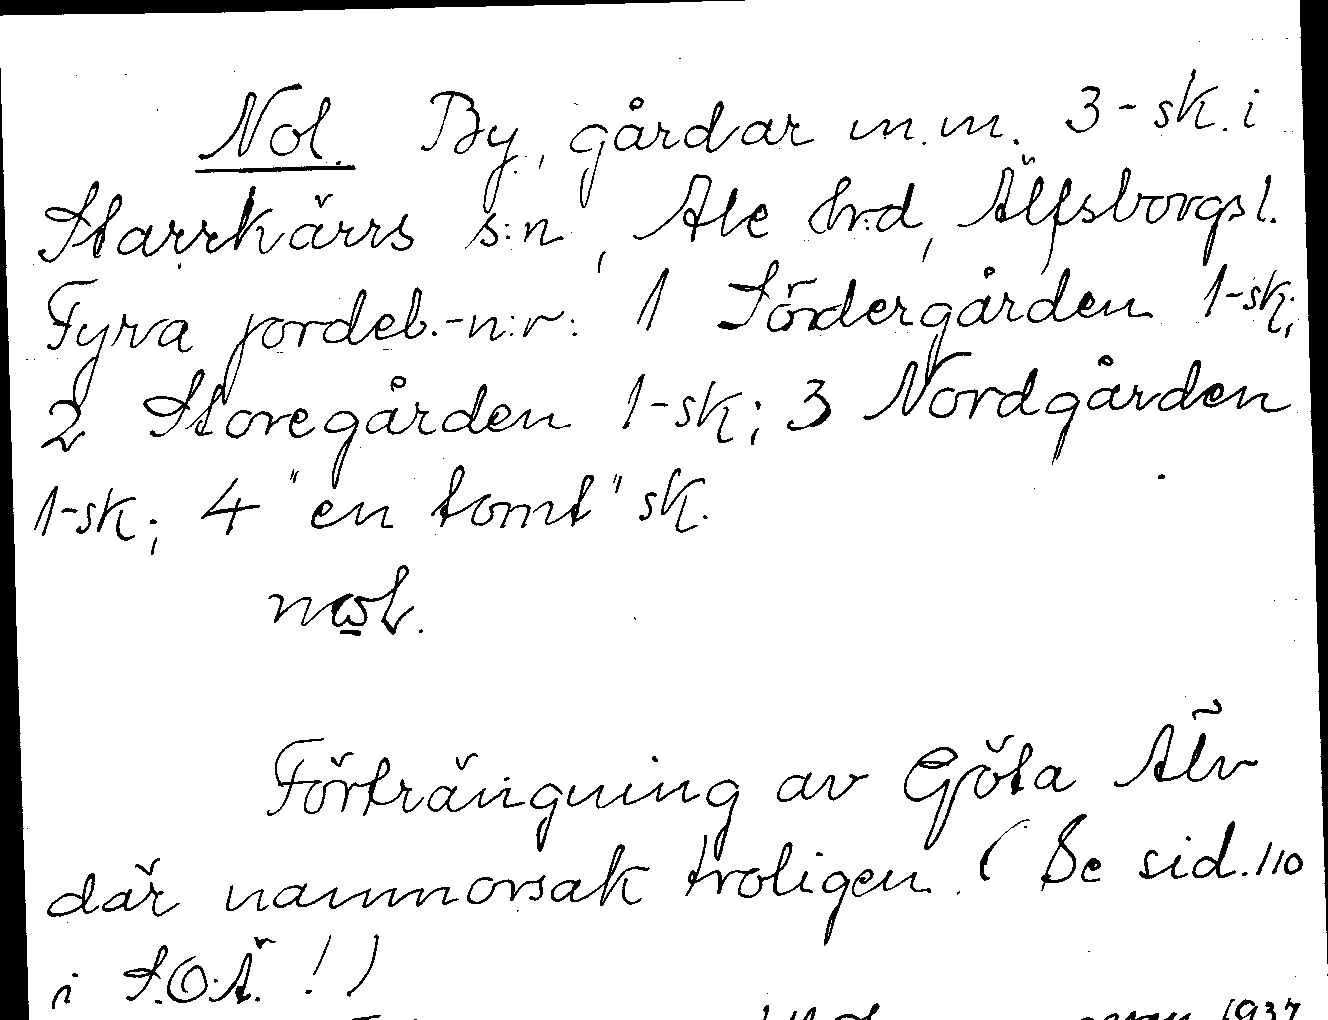 Nol. By, gårdar m.m. 3-sk. i
Starrkärrs s:n, Ale hrd, Älfsborgs l.
Fyra jordeb.-n:r: 1 Södergården 1-sk;
2 Storegården 1-sk; 3 Nordgården
1-sk; 4 "en tomt" sk.
Förträngning av Göta Älv
där namnorsak troligen. (Se sid. 110
i S.O.Ä. !)
1937